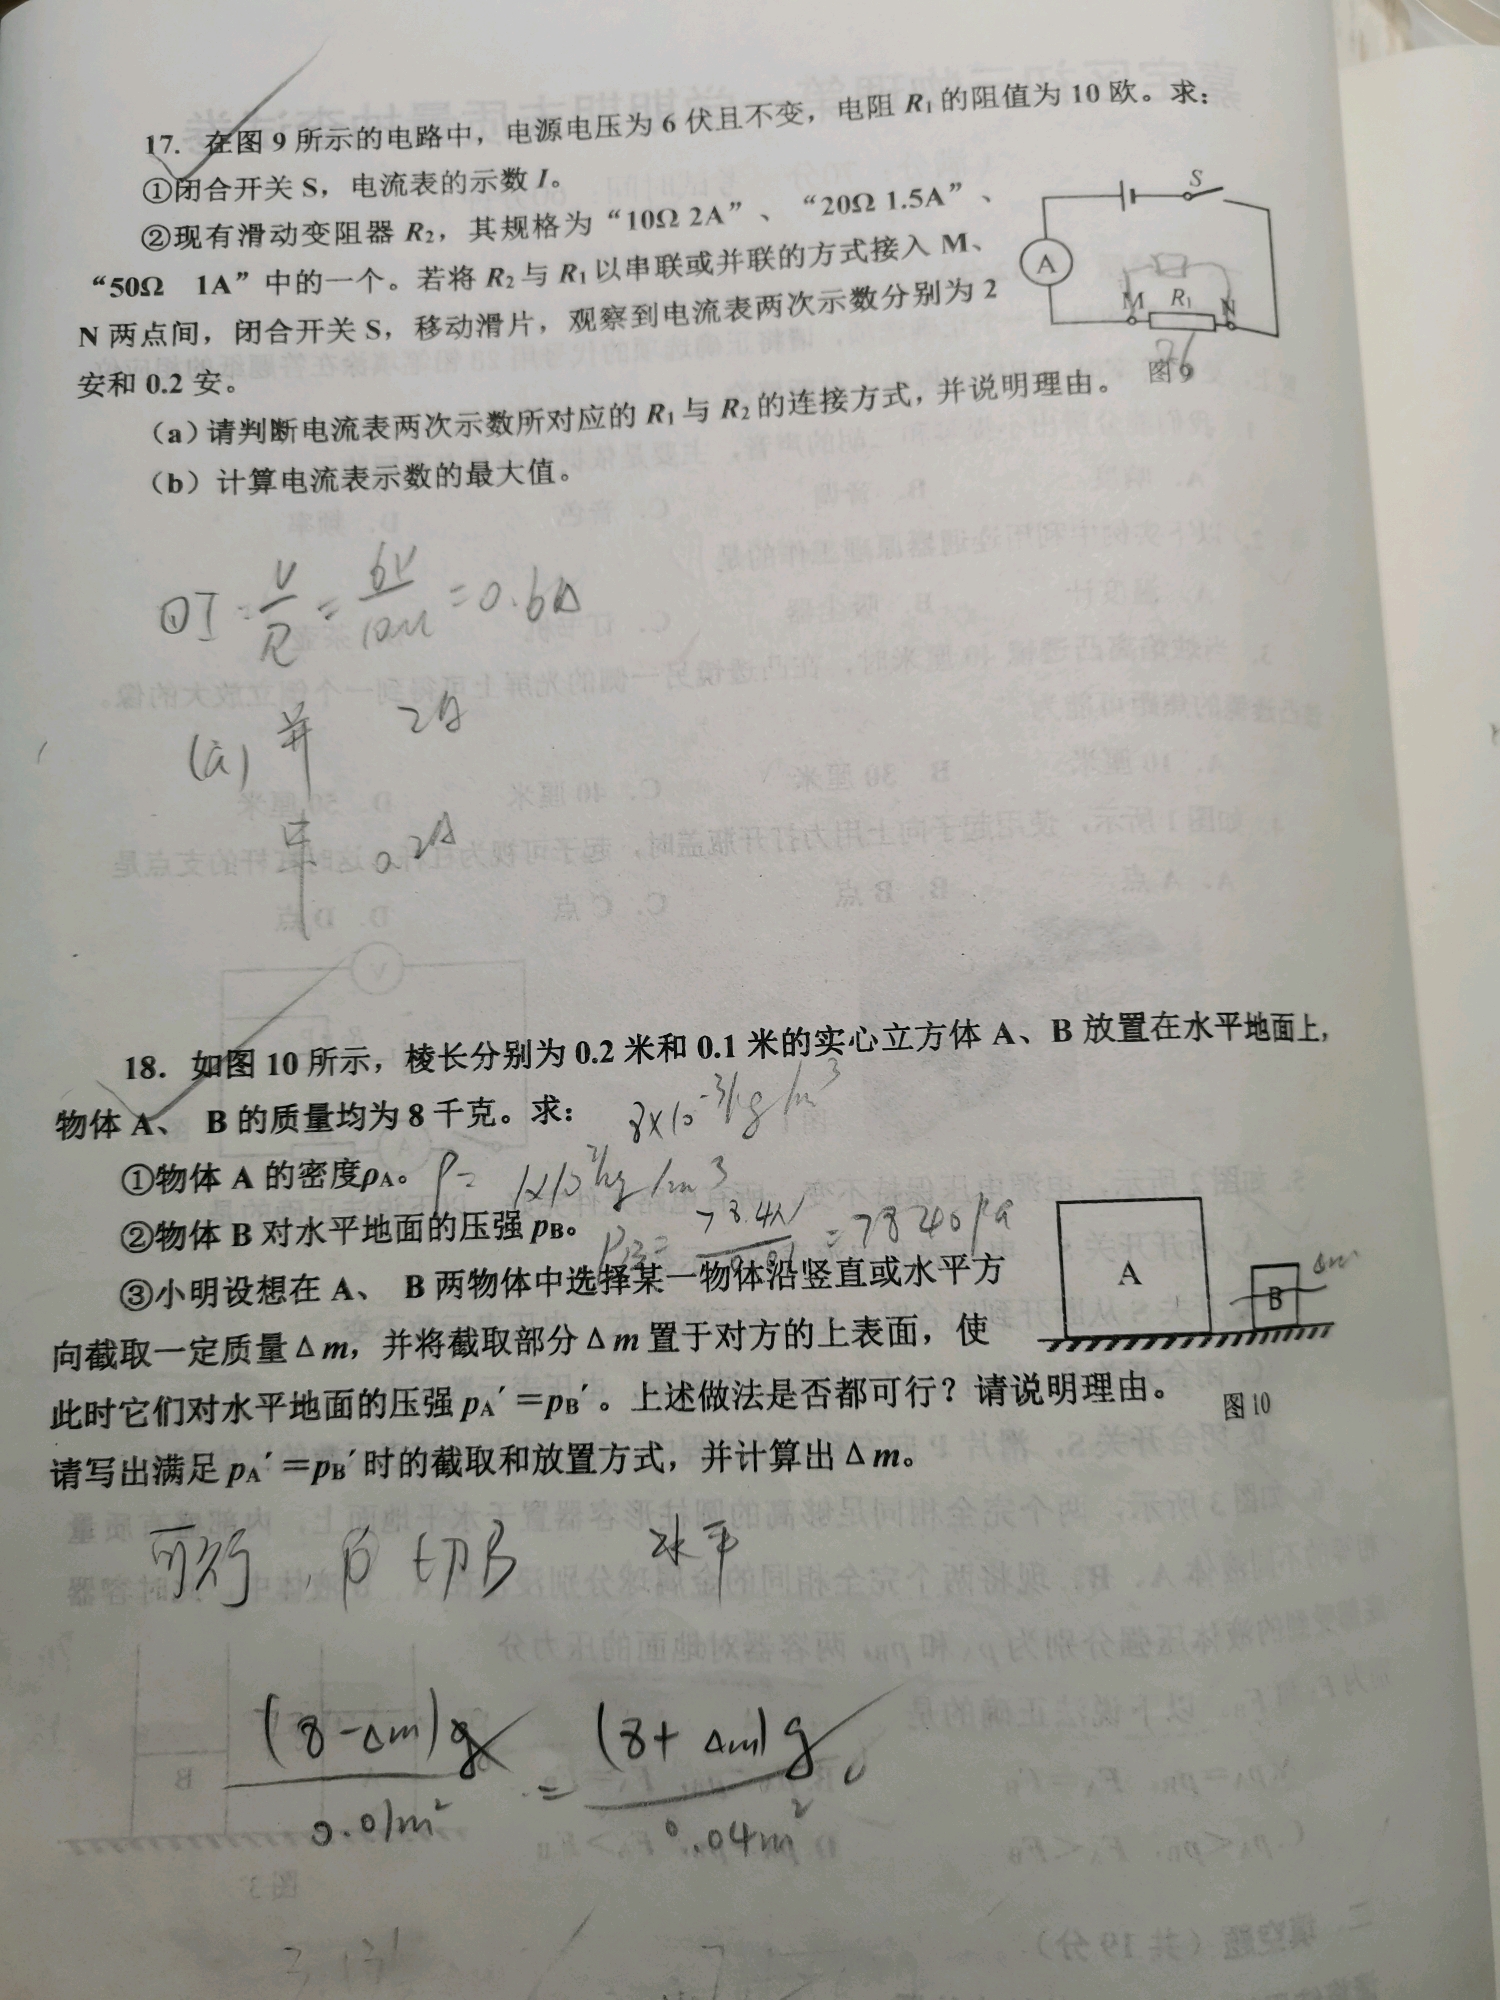 17. 在图 9 所示的电路中，电源电压为 6 伏且不变，电阻 R₁ 的阻值为 10 欧。求：
①闭合开关 S，电流表的示数 I。
②现有滑动变阻器 R₂，其规格为“10Ω 2A”、“20Ω 1.5A”、
“50Ω 1A”中的一个。若将 R₂ 与 R₁ 以串联或并联的方式接入 M、
N 两点间，闭合开关 S，移动滑片，观察到电流表两次示数分别为 2
安和 0.2 安。
（a）请判断电流表两次示数所对应的 R₁ 与 R₂ 的连接方式，并说明理由。
（b）计算电流表示数的最大值。
S
A
M R₁ N
图 9
①I=U/R=6V/10Ω=0.6A
(a) 并 2A
串 0.2A
18. 如图 10 所示，棱长分别为 0.2 米和 0.1 米的实心立方体 A、B 放置在水平地面上，
物体 A、 B 的质量均为 8 千克。求：
8×10⁻³kg/m³
①物体 A 的密度ρA。 ρ= 1×10³kg/m³
②物体 B 对水平地面的压强 pB。 PB=78.4N/0.01=7840Pa
③小明设想在 A、 B 两物体中选择某一物体沿竖直或水平方
向截取一定质量Δm，并将截取部分Δm 置于对方的上表面，使
此时它们对水平地面的压强 pA′=pB′。上述做法是否都可行？请说明理由。
请写出满足 pA′=pB′时的截取和放置方式，并计算出Δm。
A
B
Δm
图 10
可行，
切B 水平
(8-Δm)g/0.01m² = (8+Δm)g/0.04m²